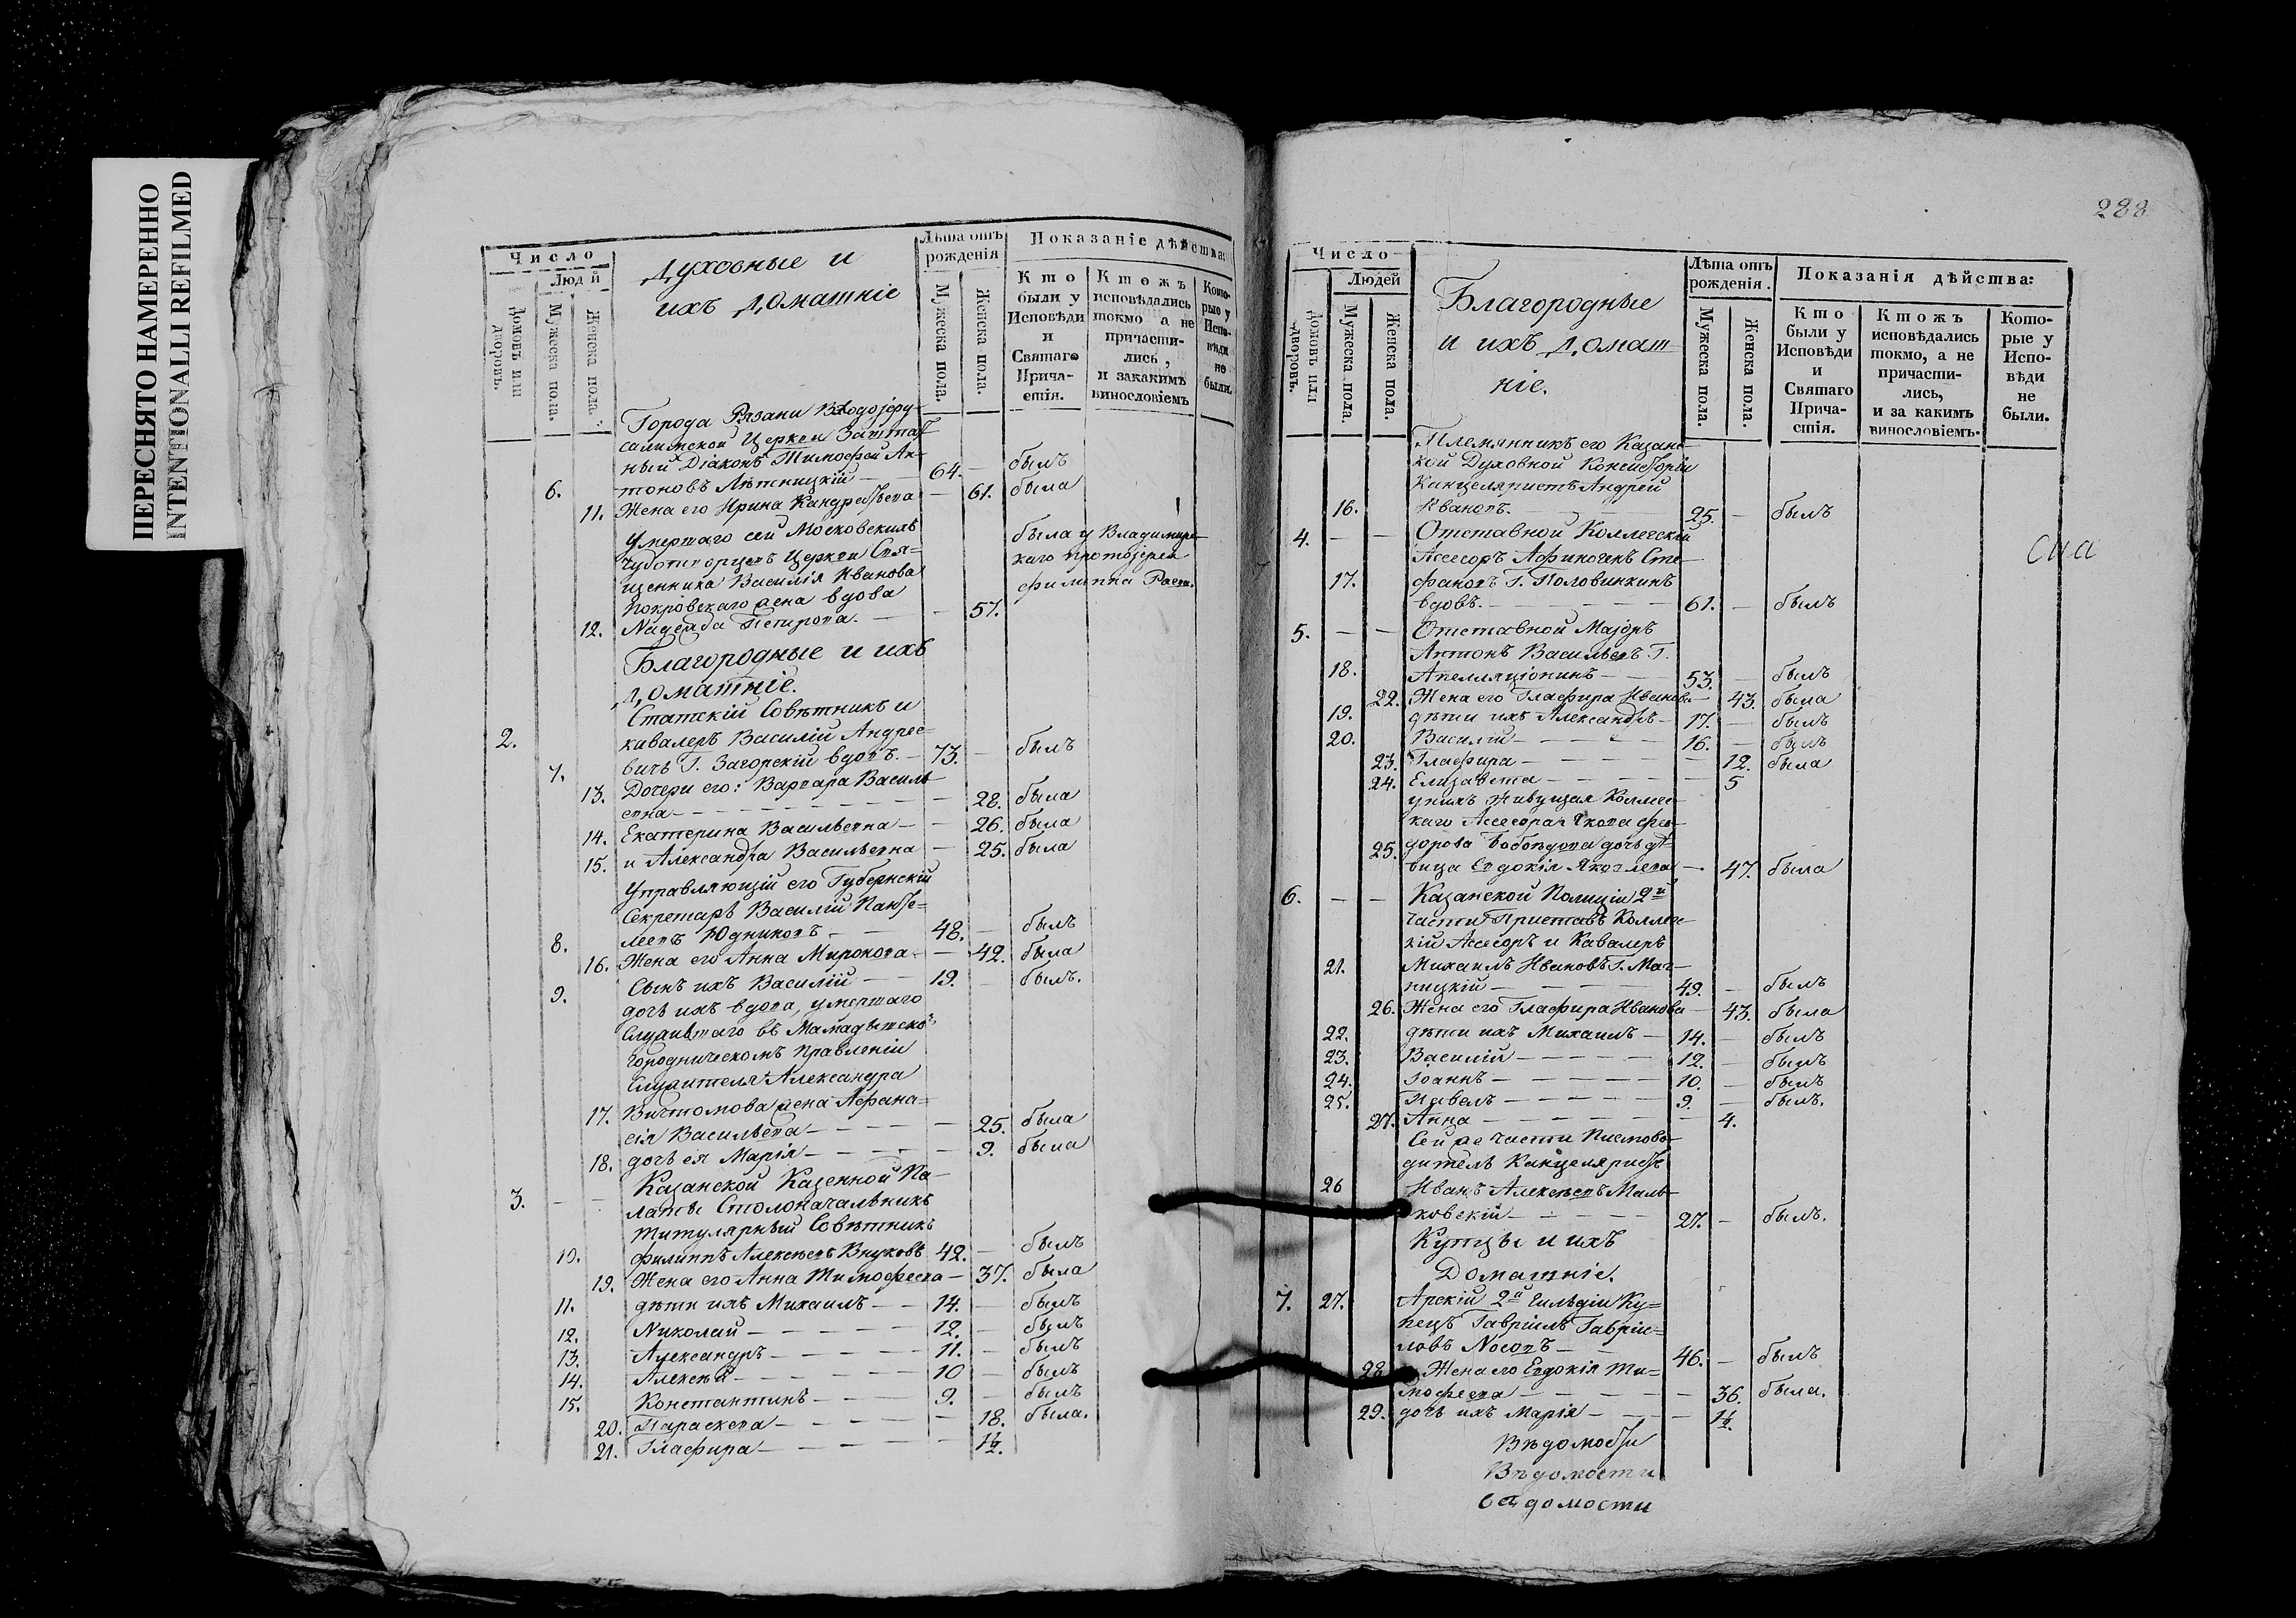 ПЕРЕСНЯТО НАМЕРЕННО
INTENTIONALLI REFILMED
Число
Людей
Домовъ или дворовъ.
Мужеска пола.
Женска пола.
Духовные и
ихъ домашніе
Лѣта отъ рожденія
Мужеска пола.
Женска пола.
Показаніе дѣйства:
Кто были у Исповѣди и Святаго Причастія.
Ктожъ исповѣдались токмо а не причастились, и закакимъ винословіемъ
Которые у Исповѣди не были.
Города Рязани Входоіеру-
салимской Церкви Заштат
ный Діаконъ Тимофей Ан-
6. тоновъ Лѣтницкій — 64. — былъ
11. Жена его Ирина Кандратьева — 61. была
Умершаго сей Московскихъ
Чудотворцевъ Церкви Свя=
щенника Василія Иванова
Покровскаго жена вдова
12. Надежда Петрова. — — 57.
была у Владимирс-
каго Протоіерея
Филиппа Расп.
Благородные и ихъ
домашніе.
Статскій Совѣтникъ и
2. кавалеръ Василій Андрее=
7. вичъ Г. Загорскій вдовъ. — 73. — былъ
13. Дочери его: Варвара Василь-
евна — — 28. была
14. Екатерина Васильевна — — 26. была
15. и Александра Васильевна — 25. была
Управляющій его Губернскій
Секретарь Василій Панте=
8. леевъ Юдниковъ — 48. — былъ
16. Жена его Анна Миронова — — 42. была
9. Сынъ ихъ Василій — 19. — былъ.
дочь ихъ вдова, умершаго
Служившаго въ Мамадышско
Городническомъ Правленіи
Служителя Александра
17. Вихтомова жена Афана=
сія Васильева — — 25. была
18. дочь ея Марія — — 9. была
3. — — Казанской Казенной Па-
латы Столоначальникъ
Титулярный Совѣтникъ
10. Филиппъ Алексѣевъ Внуковъ 42. — былъ
19. Жена его Анна Тимофеева — 37. была
11. дѣти ихъ Михаилъ — 14. — былъ
12. Николай — 12. — былъ
13. Александръ — 11. — былъ
14. Алексѣй — 10 — былъ
15. Константинъ — 9. — былъ
20. Параскева — — 18. была.
21. Глафира — — 1½.
288
Число
Людей
Домовъ или дворовъ.
Мужеска пола.
Женска пола.
Благородные
и ихъ домаш-
ніе.
Лѣта отъ рожденія.
Мужеска пола.
Женска пола.
Показанія дѣйства:
Кто были у Исповѣди и Святаго Причастія.
Ктожъ исповѣдались токмо, а не причастились, и за какимъ винословіемъ.
Которые у Исповѣди не были.
Племянникъ его Казанс-
кой Духовной Консисторіи
Канцеляристъ Андрей
16. Ивановъ. — 25. — былъ
4. — — Отставной Коллегскій
Асесоръ Афиногенъ Сте-
17. фановъ Г. Половинкинъ
вдовъ. — 61. — былъ
5. — — Отставной Маіоръ
Антонъ Васильевъ Г.
18. Апелляціонинъ — 53. — былъ
22. Жена его Глафира Иванова — 43. была
19. дѣти ихъ Александръ — 17. — былъ
20. Василій — 16. — былъ
23. Глафира — — 12. была
24. Елизавета — — 5
унихъ Живущая Коллес-
каго Асесора Якова Фео-
25. дорова Бобоѣдова дочь дѣ-
вица Евдокія Яковлева — 47. была
6. — — Казанской Полиціи 2й
части Приставъ Коллеж-
кій Асесоръ и Кавалеръ
21. Михаилъ Ивановъ Г. Мач-
пицкій — 49. — былъ
26. Жена его Глафира Иванова — 43. была
22. дѣти ихъ Михаилъ — 14. — былъ
23. Василій — 12. — былъ
24. Іоаннъ — 10. — былъ
25. Павелъ — 9. — былъ.
27. Анна — — 4.
Сей же части Писмово-
дитель Канцеляристъ
26 Иванъ Алексѣевъ Маль-
ковскій — 27. — былъ.
Купцы и ихъ
Домашніе.
7. 27. Арскій 2й Гильдіи Ку=
пецъ Гавріилъ Гавріи=
ловъ Носовъ — 46. — былъ
28. Жена его Евдокія Ти=
мофеева — — 36. была.
29. дочь ихъ Марія — — 1½.
Вѣдомости
Вѣдомости
вѣдомости